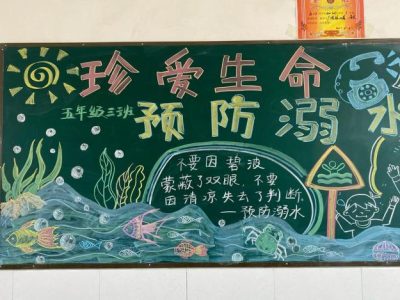 珍爱生命
五年级三班
预防溺水
不要因碧波
蒙蔽了双眼,不要
因清凉失去了判断.
—预防溺水